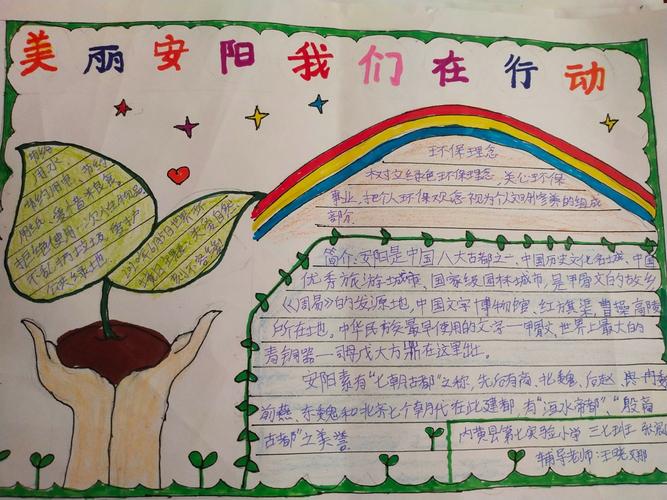 美丽安阳我们在行动
节约
用水
节约用电 节约
粮食 爱惜粮食
拒绝使用一次性物品
不乱扔垃圾 爱护
公共绿地
环保理念
树立绿色环保理念，关心环保
事业，把个人环保观念视为个人文明修养的组成
部分
简介：安阳是中国八大古都之一，中国历史文化名城、中国
优秀旅游城市、国家级园林城市，是甲骨文的故乡
《周易》的发源地，中国文字博物馆、红旗渠、曹操高陵
所在地。中华民族最早使用的文字一甲骨文、世界上最大的
青铜器一司母戊大方鼎在这里出。
安阳素有“七朝古都”之称，先后有商、北魏、后赵、冉魏
前燕、东魏和北齐七个朝代在此建都，有“洹水帝都”、“殷商
古都”之美誉
内黄县第七实验小学 三七班
辅导老师：王晓娜